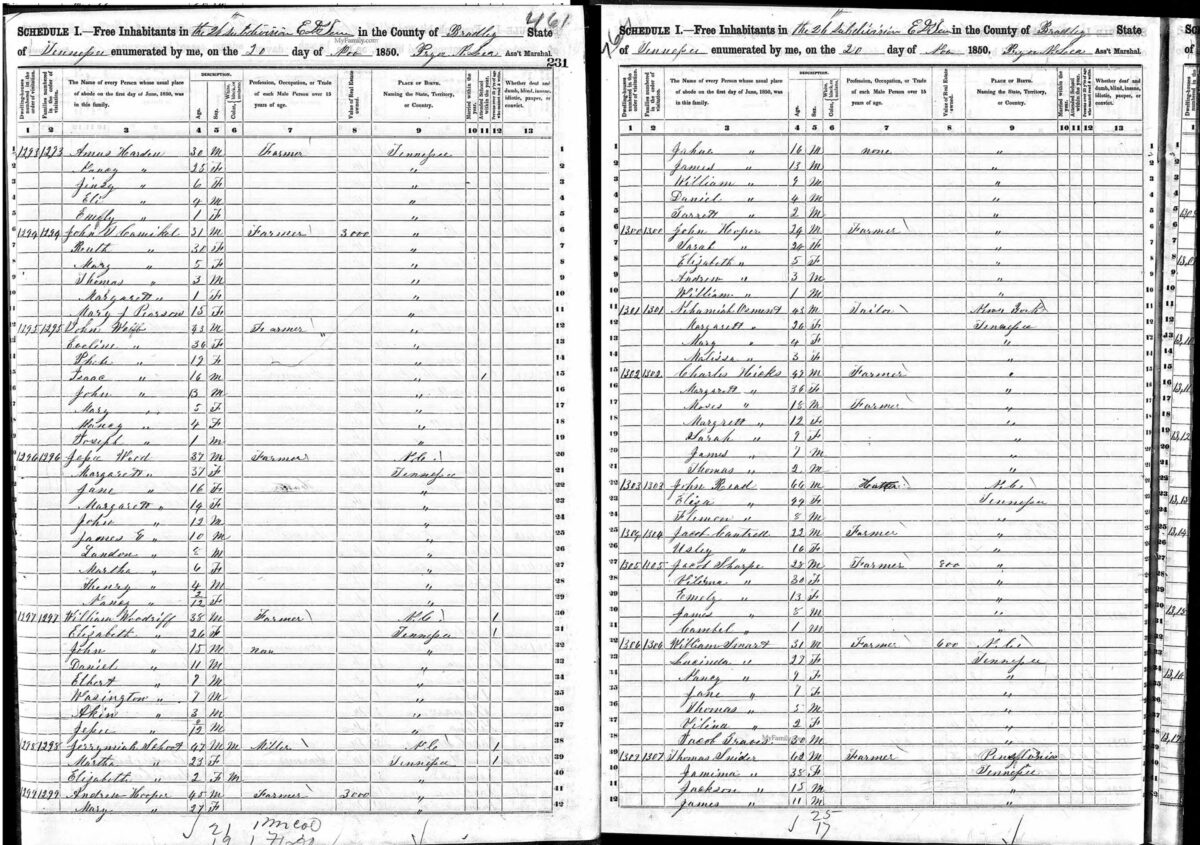 461
SCHEDULE I.—Free Inhabitants in the 26th Subdivision in the County of Bradley State
MyFamily.com
of Tennessee enumerated by me, on the 20 day of Nov 1850. Ass't Marshal.
231
Dwelling-houses numbered in the order of visitation.
Families numbered in the order of visitation.
The Name of every Person whose usual place of abode on the first day of June, 1850, was in this family.
DESCRIPTION.
Age.
Sex.
Color, White, black, or mulatto.
Profession, Occupation, or Trade of each Male Person over 15 years of age.
Value of Real Estate owned.
PLACE OF BIRTH. Naming the State, Territory, or Country.
Married within the year.
Attended School within the year.
Persons over 20 y'rs of age who cannot read & write.
Whether deaf and dumb, blind, insane, idiotic, pauper, or convict.
1 2 3 4 5 6 7 8 9 10 11 12 13
1 1293 1293 Amus Harden 30 M Farmer Tennessee 1
2 Nancy " 25 F " 2
3 Jinsy " 6 F " 3
4 Eli " 4 M " 4
5 Emily " 1 F " 5
6 1294 1294 John T Camikel 31 M Farmer 3000 " 6
7 Ruth " 30 F " 7
8 Mary " 5 F " 8
9 Thomas " 3 M " 9
10 Margarett " 1 F " 10
11 Mary J Pearson 15 F " 11
12 1295 1295 John Webb 43 M Farmer " 12
13 Eveline " 36 F " 13
14 " 19 F " 14
15 Isaac " 16 M " 1 15
16 John " 13 M " 16
17 Mary " 5 F " 17
18 Nancy " 4 F " 18
19 Joseph " 1 M " 19
20 1296 1296 Jesse Wood 37 M Farmer N.C. 20
21 Margarett " 37 F Tennessee 21
22 Jane " 16 F " 22
23 Margarett " 14 F " 23
24 John " 12 M " 24
25 James E " 10 M " 25
26 Landon " 8 M " 26
27 Martha " 6 F " 27
28 Henry " 4 M " 28
29 Nancy " 2/12 F " 29
30 1297 1297 William Woodriff 38 M Farmer N.C. 1 30
31 Elisabeth " 26 F Tennessee 1 31
32 John " 15 M non " 32
33 Daniel " 11 M " 33
34 Elbert " 9 M " 34
35 Wasington " 7 M " 35
36 Akin " 3 M " 36
37 Jesse " /12 M " 37
38 1298 1298 Jerrymiah 47 M M Miller N.C. 1 38
39 Martha " 23 F Tennessee 1 39
40 Elizabeth " 2 F M " 40
41 1299 1299 Andrew Hooper 45 M Farmer 3000 " 41
42 Mary " 27 F " 42
21
19
SCHEDULE I.—Free Inhabitants in the 26th Subdivision in the County of Bradley State
of Tennessee enumerated by me, on the 20 day of Nov 1850. Ass't Marshal.
Dwelling-houses numbered in the order of visitation.
Families numbered in the order of visitation.
The Name of every Person whose usual place of abode on the first day of June, 1850, was in this family.
DESCRIPTION.
Age.
Sex.
Color, White, black, or mulatto.
Profession, Occupation, or Trade of each Male Person over 15 years of age.
Value of Real Estate owned.
PLACE OF BIRTH. Naming the State, Territory, or Country.
Married within the year.
Attended School within the year.
Persons over 20 y'rs of age who cannot read & write.
Whether deaf and dumb, blind, insane, idiotic, pauper, or convict.
1 2 3 4 5 6 7 8 9 10 11 12 13
1 " 16 M none " 1
2 James " 13 M " 2
3 William " 9 M " 3
4 Daniel " 4 M " 4
5 Garrett " 2 M " 5
6 1300 1300 John Hooper 24 M Farmer " 6
7 Sarah " 24 F " 7
8 Elizabeth " 5 F " 8
9 Andrew " 3 M " 9
10 William " 1 M " 10
11 1301 1301 Nehamiah Osment 45 M Tailor New York 11
12 Margarett " 26 F Tennessee 12
13 Mary " 4 F " 13
14 Malissa " 3 F " 14
15 1302 1302 Charles Hicks 42 M Farmer " 15
16 Margarett " 38 F " 16
17 Moses " 18 M Farmer " 17
18 Margrett " 12 F " 18
19 Sarah " 9 F " 19
20 James " 7 M " 20
21 Thomas " 2 M " 21
22 1303 1303 John Read 66 M Hatter N.C. 22
23 Eliza " 49 F Tennessee 23
24 Flemon " 8 M " 24
25 1304 1304 Jacob Cantrell 22 M Farmer " 25
26 Usley " 16 F " 26
27 1305 1105 Jacob Sharpe 28 M Farmer 800 " 27
28 " 30 F " 28
29 Emely " 13 F " 29
30 James " 8 M " 30
31 Cambel " 1 M " 31
32 1306 1306 William 31 M Farmer 600 N.C. 32
33 Lucinda " 27 F Tennessee 33
34 Nancy " 9 F " 34
35 Jane " 7 F " 35
36 Thomas " 5 M " 36
37 " 2 F " 37
38 Jacob Graves 30 M " 38
MyFamily.com
39 1307 1307 Thomas Snider 62 M Farmer 39
40 Jamima " 38 F Tennessee 40
41 Jackson " 15 M " 41
42 James " 11 M " 42
25
17